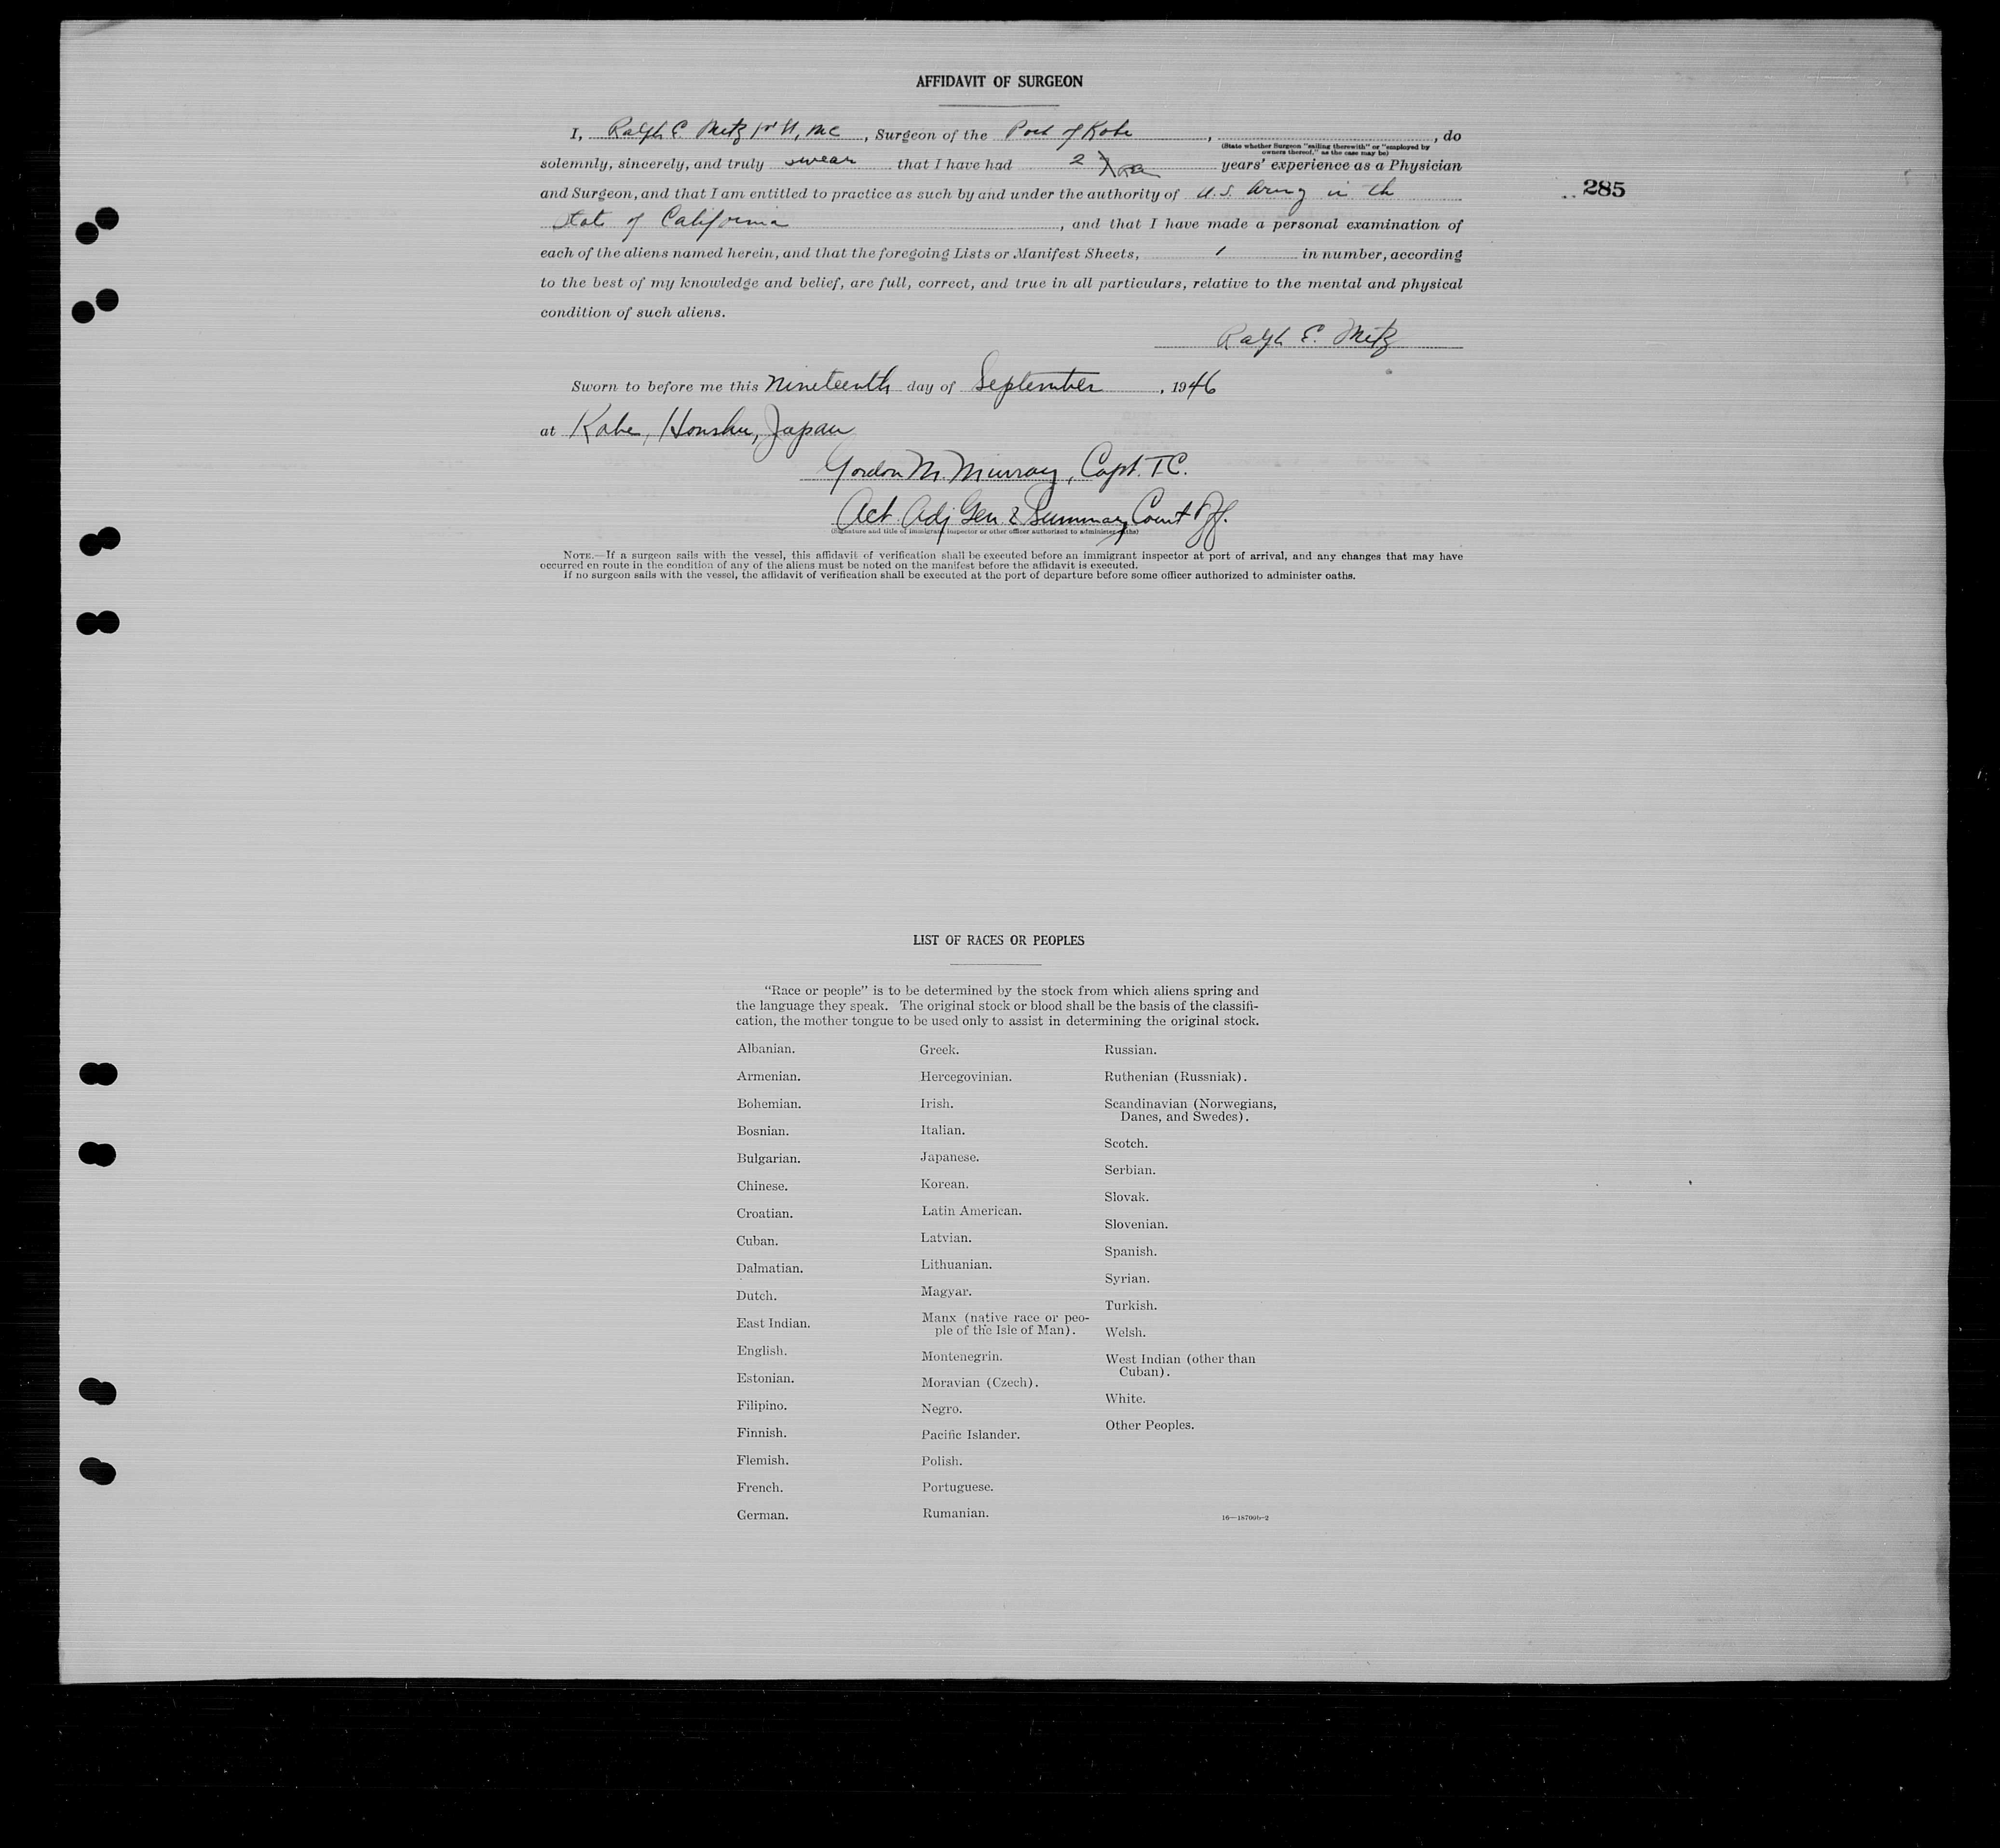 AFFIDAVIT OF SURGEON
I, Ralph E. Metz 1st Lt, MC, Surgeon of the Port of Kobe, , do
(State whether Surgeon "sailing therewith" or "employed by
owners thereof," as the case may be)
solemnly, sincerely, and truly swear that I have had 2 years' experience as a Physician
285
and Surgeon, and that I am entitled to practice as such by and under the authority of U.S. Army in the
State of California, and that I have made a personal examination of
each of the aliens named herein, and that the foregoing Lists or Manifest Sheets, 1 in number, according
to the best of my knowledge and belief, are full, correct, and true in all particulars, relative to the mental and physical
condition of such aliens.
Ralph E. Metz
Sworn to before me this Nineteenth day of September, 1946
at Kobe, Honshu, Japan
Gordon M. Murray, Capt. TC.
Act. Adj Gen & Summary Court Off.
(Signature and title of immigrant inspector or other officer authorized to administer oaths)
NOTE.—If a surgeon sails with the vessel, this affidavit of verification shall be executed before an immigrant inspector at port of arrival, and any changes that may have
occurred en route in the condition of any of the aliens must be noted on the manifest before the affidavit is executed.
If no surgeon sails with the vessel, the affidavit of verification shall be executed at the port of departure before some officer authorized to administer oaths.
LIST OF RACES OR PEOPLES
"Race or people" is to be determined by the stock from which aliens spring and
the language they speak. The original stock or blood shall be the basis of the classifi-
cation, the mother tongue to be used only to assist in determining the original stock.
Albanian.
Armenian.
Bohemian.
Bosnian.
Bulgarian.
Chinese.
Croatian.
Cuban.
Dalmatian.
Dutch.
East Indian.
English.
Estonian.
Filipino.
Finnish.
Flemish.
French.
German.
Greek.
Hercegovinian.
Irish.
Italian.
Japanese.
Korean.
Latin American.
Latvian.
Lithuanian.
Magyar.
Manx (native race or peo-
ple of the Isle of Man).
Montenegrin.
Moravian (Czech).
Negro.
Pacific Islander.
Polish.
Portuguese.
Rumanian.
Russian.
Ruthenian (Russniak).
Scandinavian (Norwegians,
Danes, and Swedes).
Scotch.
Serbian.
Slovak.
Slovenian.
Spanish.
Syrian.
Turkish.
Welsh.
West Indian (other than
Cuban).
White.
Other Peoples.
16—18700b-2